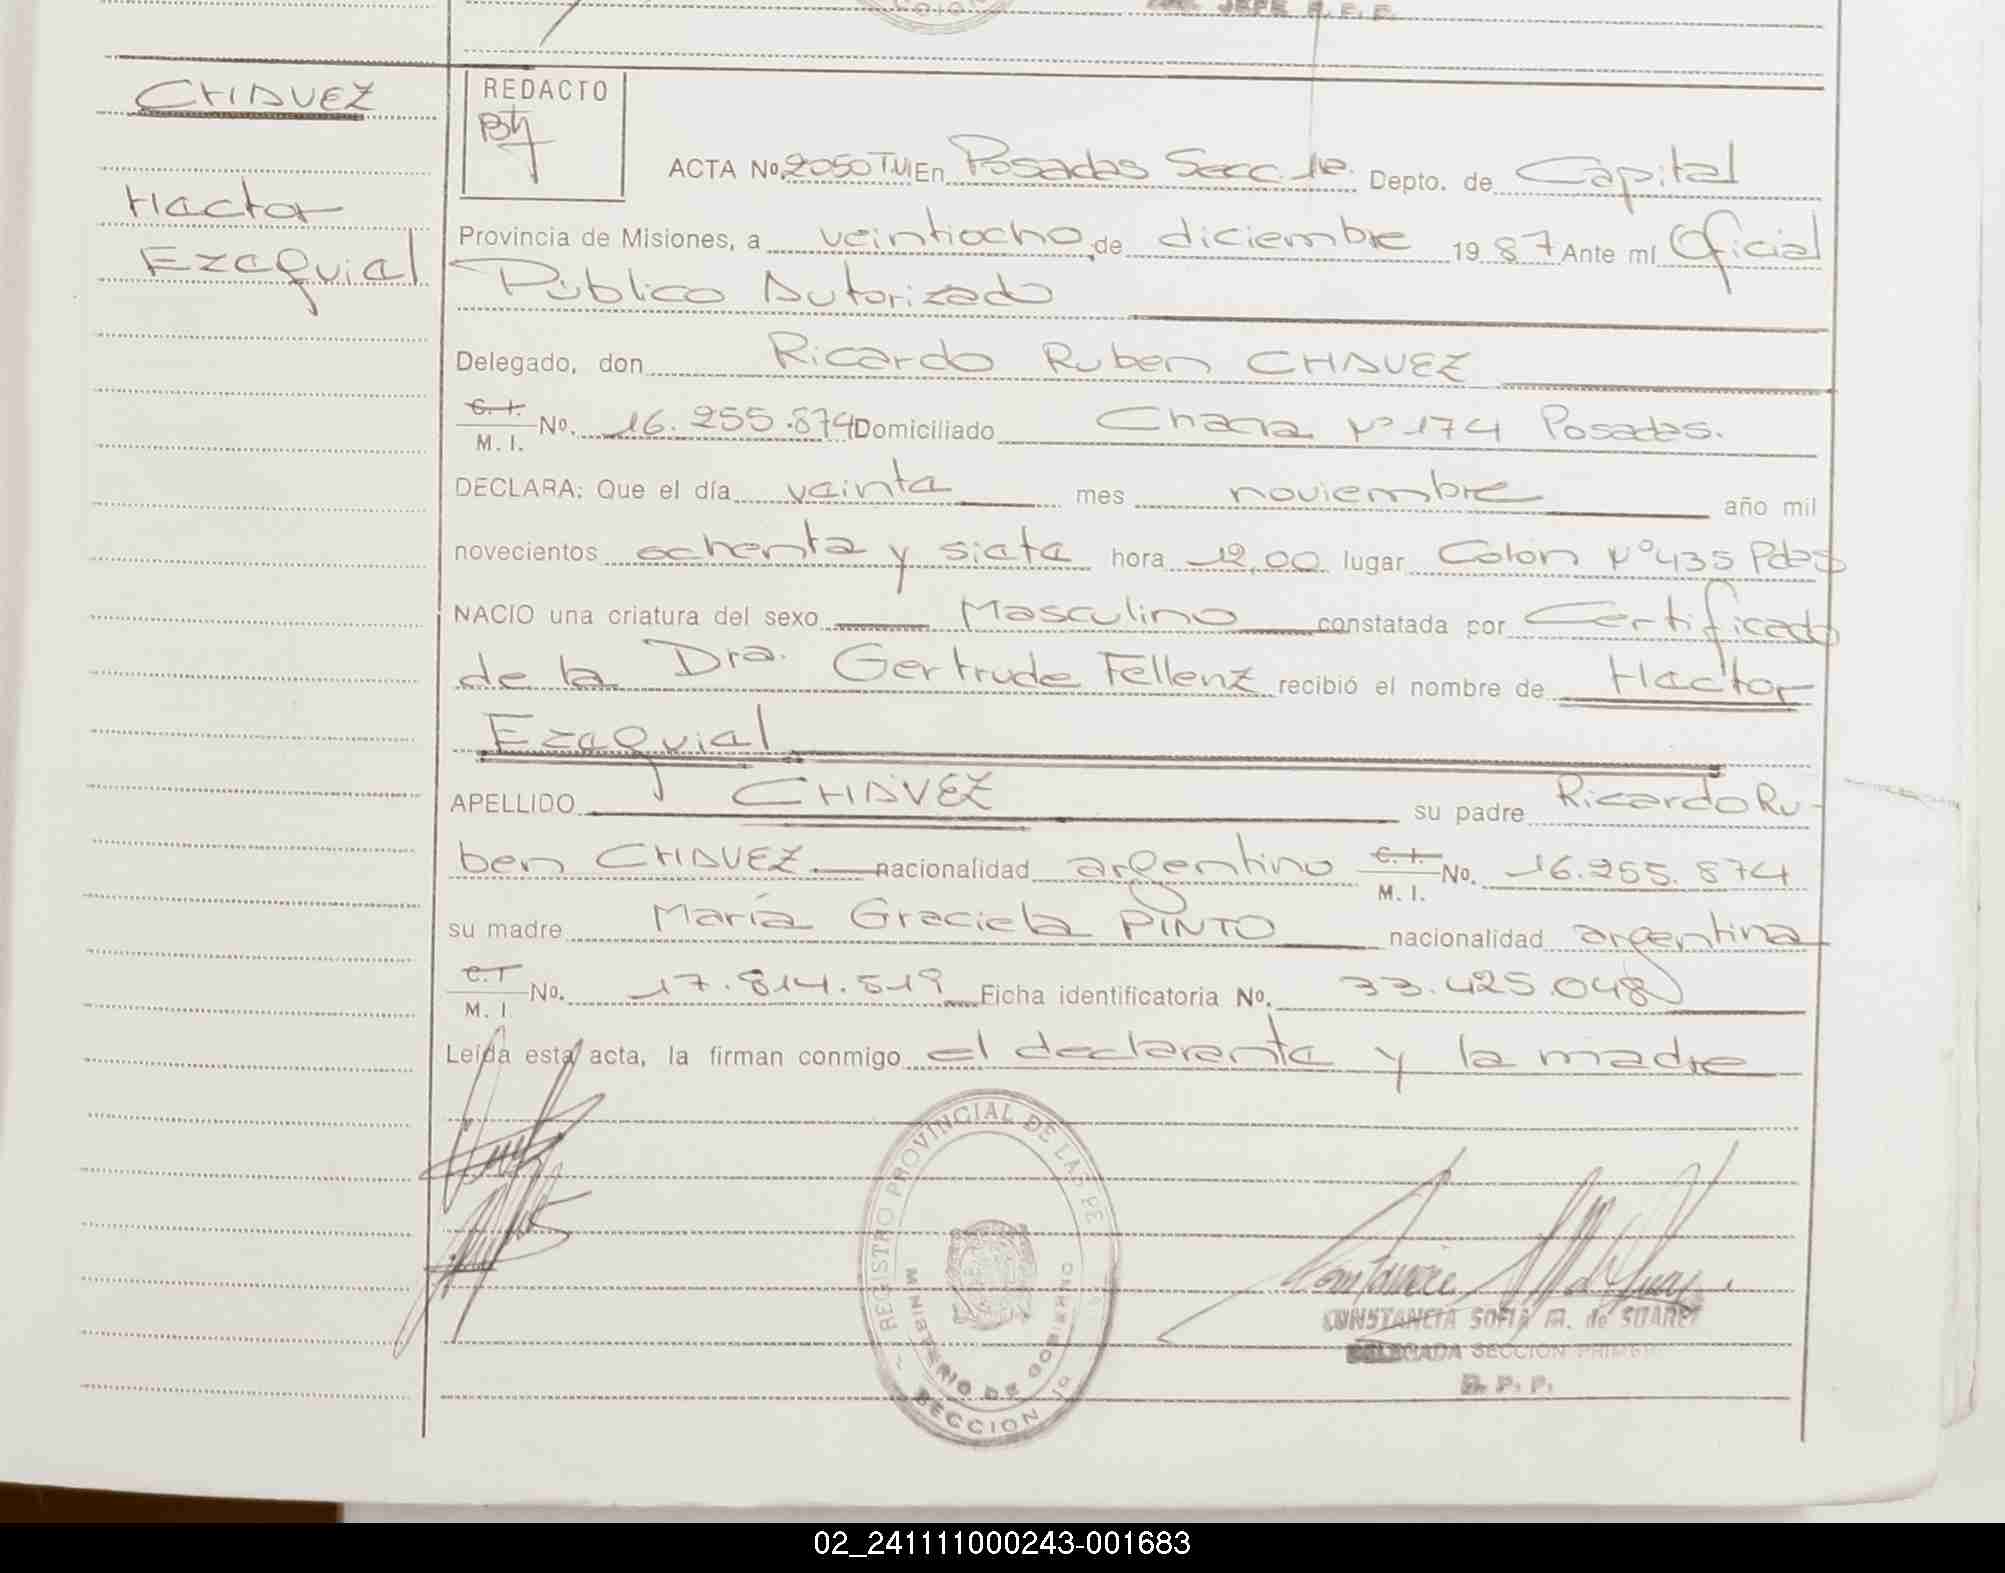 CHAVEZ
Hector
Ezequiel
REDACTO
ACTA No. 2050 T.VI En Posadas Secc. 1ª. Depto. de Capital
Provincia de Misiones, a veintiocho de diciembre 19 87 Ante mí Oficial
Público Autorizado
Delegado, don Ricardo Ruben CHAVEZ
C. I.
M. I. No. 16.255.874 Domiciliado Chacra Nº 174 Posadas.
DECLARA: Que el día veinte mes noviembre año mil
novecientos ochenta y siete hora 12,00 lugar Colón Nº 435 Pdas
NACIO una criatura del sexo Masculino constatada por Certificado
de la Dra. Gertrude Fellenz recibió el nombre de Hector
Ezequiel
APELLIDO CHAVEZ su padre Ricardo Ru-
ben CHAVEZ nacionalidad argentino C. I. No. 16.255.874
M. I.
su madre María Graciela PINTO nacionalidad argentina
C.I
M. I No. 17.814.519 Ficha identificatoria No. 33.425.048
Leída esta acta, la firman conmigo el declarante y la madre
REGISTRO PROVINCIAL DE LAS PE
MINISTERIO DE GOBIERNO
SECCION 1ª
CONSTANCIA SOFIA M. de SUAREZ
DELEGADA SECCION PRIMERA
R. P. P.
02_241111000243-001683